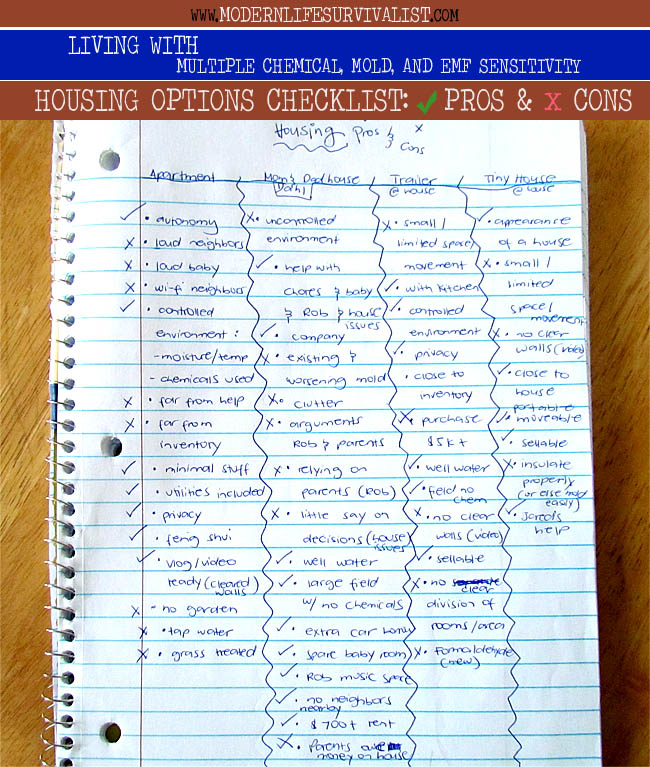 WWW.MODERNLIFESURVIVALIST.COM
LIVING WITH
MULTIPLE CHEMICAL, MOLD, AND EMF SENSITIVITY
HOUSING OPTIONS CHECKLIST: ✓ PROS & X CONS
Housing Pros & x Cons
Apartment
✓ • autonomy
x • loud neighbors
x • loud baby
x • wi-fi neighbors
✓ • controlled
environment:
- moisture/temp
- chemicals used
x • far from help
x • far from
inventory
✓ • minimal stuff
✓ • utilities included
✓ • privacy
✓ • feng shui
✓ • vlog/video
ready (cleared)
walls
x - no garden
x • tap water
x • grass treated
Mom & Dad house
x • uncontrolled
environment
✓ • help with
chores & baby
& Rob & house
issues
✓ • company
x • existing &
worsening mold
x • clutter
x • arguments
Rob & parents
x • relying on
parents (Rob)
x • little say on
decisions (house)
issues
✓ • well water
✓ • large field
w/ no chemicals
✓ • extra car
✓ • spare baby room
✓ • Rob music space
✓ • no neighbors
nearby
✓ • $700+ rent
x • parents
money on house
Trailer
@ house
x • small /
limited space
movement
✓ • with kitchen
✓ • controlled
environment
✓ • privacy
• close to
inventory
x • purchase
$5K+
✓ • well water
✓ • field no
chem
x • no clear
walls (video)
✓ • sellable
x • no clear
division of
rooms/area
x • formaldehyde
(new)
Tiny House
@ house
✓ • appearance
of a house
x • small /
limited
space/
movement
x • no clear
walls (video)
✓ • close to
house
portable
✓ • moveable
✓ • sellable
x • insulate
properly
(or else mold
easily)
✓ • Jared's
help